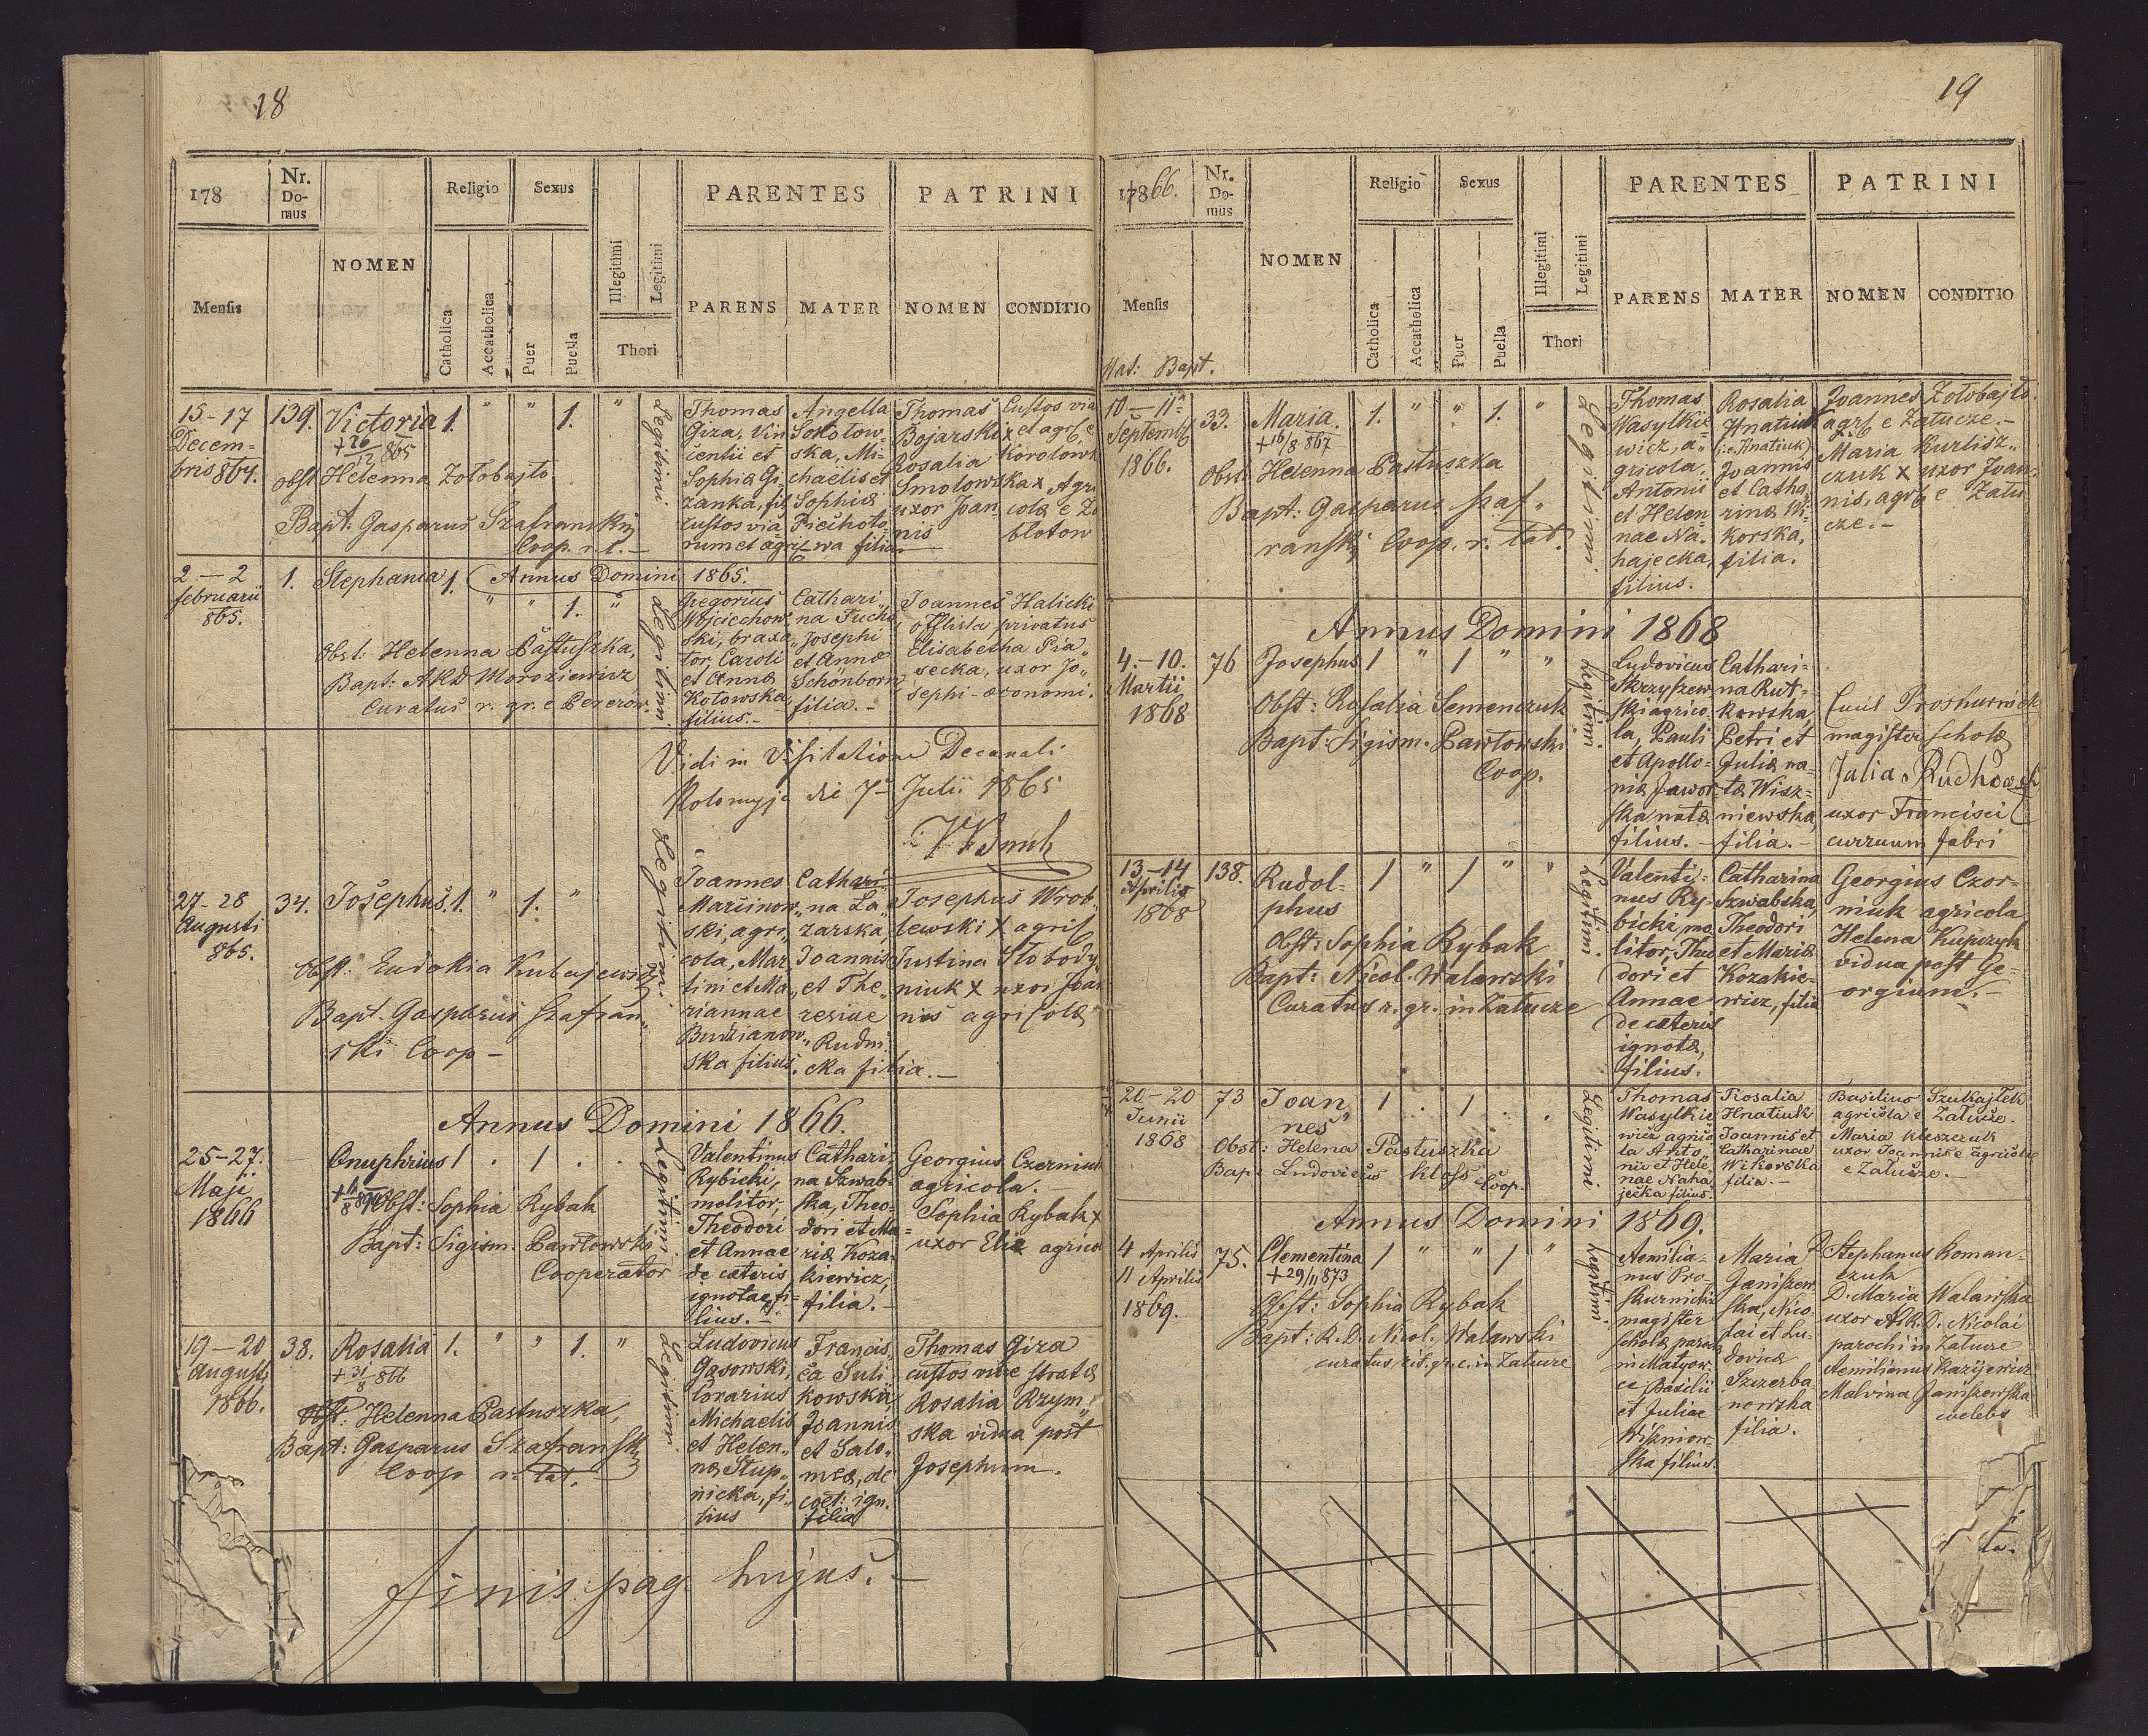 18
178
Nr. Domus
NOMEN
Religio
Sexus
PARENTES
PATRINI
Mensis
Catholica
Accatholica
Puer
Puella
Illegitimi
Legitimi
Thori
PARENS
MATER
NOMEN
CONDITIO
15-17
Decem=
bris 864.
139.
Victoria 1. " " 1. "
+ 26/12 865
obst Helenna Zołobajto
Bapt. Gasparus Szafranskij
Coop. r. l. –
Legitimi
Thomas
Giza, Vin
centii et
Sophiæ Gi
zanka, fil
custos via
rum et agri
Angella
Sokołow=
ska, Mi=
chaelis et
Sophiæ
Piechoto
wa filia
Thomas Custos via
Bojarski x et agr
Rosalia Korolowk
Smolowska x Agri
uxor Joan= colæ e
nis błotow
2. – 2
februarii
865.
1.
Stephania 1. Annus Domini 1865.
" " 1. "
Obst: Helenna Pastuszka,
Bapt: AKD Moroziewicz
Curatus r. gr. e Pererów.
Legitimi
Gregorius
Wojciechow
ski, braxa
tor, Caroli
et Annæ
Kotowska
filius.–
Cathari
na Fuchs
Josephi
et Annæ
Schönborn
filia.–
Joannes Halicki
offlista privatus
Elisabetha Pia
secka, uxor Jo
sephi – œconomi.
Vidi in Visitatione Decanali
Kolomyje die 7 Julii 1865
27-28
Augusti
865.
34.
Josephus. 1. " 1. "
Obst: Eudokia
Bapt. Gasparus Szafran
ski Coop –
Legitimi
Joannes
Marcinow
ski, agri
cola, Mar
tini et Ma
riannae
Budzianow
ska filius.
Cathari
na Ła
zarska,
Joannis
et The
resiae
Rudni
cka filia.–
Josephus Wrob
lewski x agri
Justina Słobody
niuk x uxor Joan
nis agricolæ
Annus Domini 1866.
25-27.
Maji
1866
Onuphrius 1 . 1 . .
Obst: Sophia Rybak
Bapt: Sigism. Pawłowski
Cooperator
Legitimi
Valentinus
Rybicki,
molitor,
Theodori
et Annae
de cæteris
ignotae, fi=
lius.–
Cathari
na Szwab=
ska, Theo=
dori et Ma=
riæ Koza
kiewicz,
filia.–
Georgius Czerniuk
agricola.
Sophia Rybak x
uxor Eliæ agrico
19–20
Augusti
1866.
38.
Rosalia 1. " " 1. "
+ 31/8 866
Obst: Helenna Pastuszka,
Bapt: Gasparus Szafranski
Coop r. lat.
Legitimi
Ludovicus
Gąsowski,
lorarius
Michaelis
et Helen
næ Stup
nicka, fi
lius
Francis
ca Suli
kowska,
Joannis
et Salo
meæ, de
cæt: ign.
filia
Thomas Giza
custos viæ stratæ
Rosalia Rzym
ska vidua post
Josephum.
finis pag. hujus.–
19
17866.
Nr. Domus
NOMEN
Religio
Sexus
PARENTES
PATRINI
Mensis
Catholica
Accatholica
Puer
Puella
Illegitimi
Legitimi
Thori
PARENS
MATER
NOMEN
CONDITIO
Nat: Bapt.
10–11
Septemb
1866.
33.
Maria. 1. " " 1. "
+ 16/8 867
Obst. Helenna Pastuszka
Bapt: Gasparus Szaf
ranskj Coop. r. lat.
Legitimi
Thomas
Wasylkie
wicz, a=
gricola,
Antonii
et Helen
nae Na=
hajecka,
filius.
Rosalia
Hnatiuk
(i.e. Hnatiuk)
Joannis
et Catha
rinæ Wi
korska,
filia.
Joannes Zołobajto.
agr. e Zatucze.–
Maria Kurlisz
czuk x uxor Joan
nis, agr. e Zatu
cze.–
Annus Domini 1868
4.–10.
Martii
1868
76
Josephus 1 " 1 " "
Obst: Rosalia Semenczuk
Bapt: Sigism. Pawłowski
Coop.
Legitimi
Ludovicus
Skrzyszew
ski agrico
la, Pauli
et Apollo=
niæ Jawor
ska natæ
filius.–
Cathari=
na Rut=
kowska,
Petri et
Juliæ na=
tæ Wisz=
niewska,
filia.–
Emil Proskurnicki
magister scholæ
Julia Rudkowska
uxor Francisci
curruum fabri
13–14
Aprilis
1868
138.
Rudol=
phus 1 " 1 " "
Obst: Sophia Rybak
Bapt: Nicol. Walawski
Curatus r. gr. in Zatucze
Legitimi
Valenti=
nus Ry=
bicki, mo
litor, Theo
dori et
Annae
de cæteris
ignotæ,
filius.
Catharina
Szwabska,
Theodori
et Mariæ
Kozakie=
wicz, filia
Georgius Czor=
niuk agricola
Helena Kupczyk
vidua post Ge=
orgium.–
20–20
Junii
1868
73
Joan
nes 1 . 1 . .
Obst: Helena Pastuszka
Bap: Ludovicus Kloss Coop.
Legitimi
Thomas
Wasylkie
wicz agrico
la Anto
nii et Hele
nae Naha
jecka filius.
Rosalia
Hnatiuk
Joannis et
Catharinae
Wikorska
filia.–
Basilius Szukajłek
agricola e Zatucze.
Maria Kleszczuk
uxor Joannis agricolæ
e Zatucze.–
Annus Domini 1869.
4 Aprilis
11 Aprilis
1869.
75.
Clementina 1 " " 1 "
+ 29/11 873
Obst: Sophia Rybak
Bapt: R.D. Nicol. Walawski
curatus rit. gr. c. in Zatucze
Legitimi
Aemilia=
nus Pro
skurnicki
magister
scholæ
in Matyow
ce Basilii
et Juliae
Wiszniow
ska filius.
Maria
Janiszew
ska, Nico
lai et Lu=
dovicæ
Szczerba
nowska
filia.
Stephanus Roman
czuk
D. Maria Walawska
uxor D. Nicolai
parochi in Zatucze
Aemilianus
Malvina Janiszewska
celebs